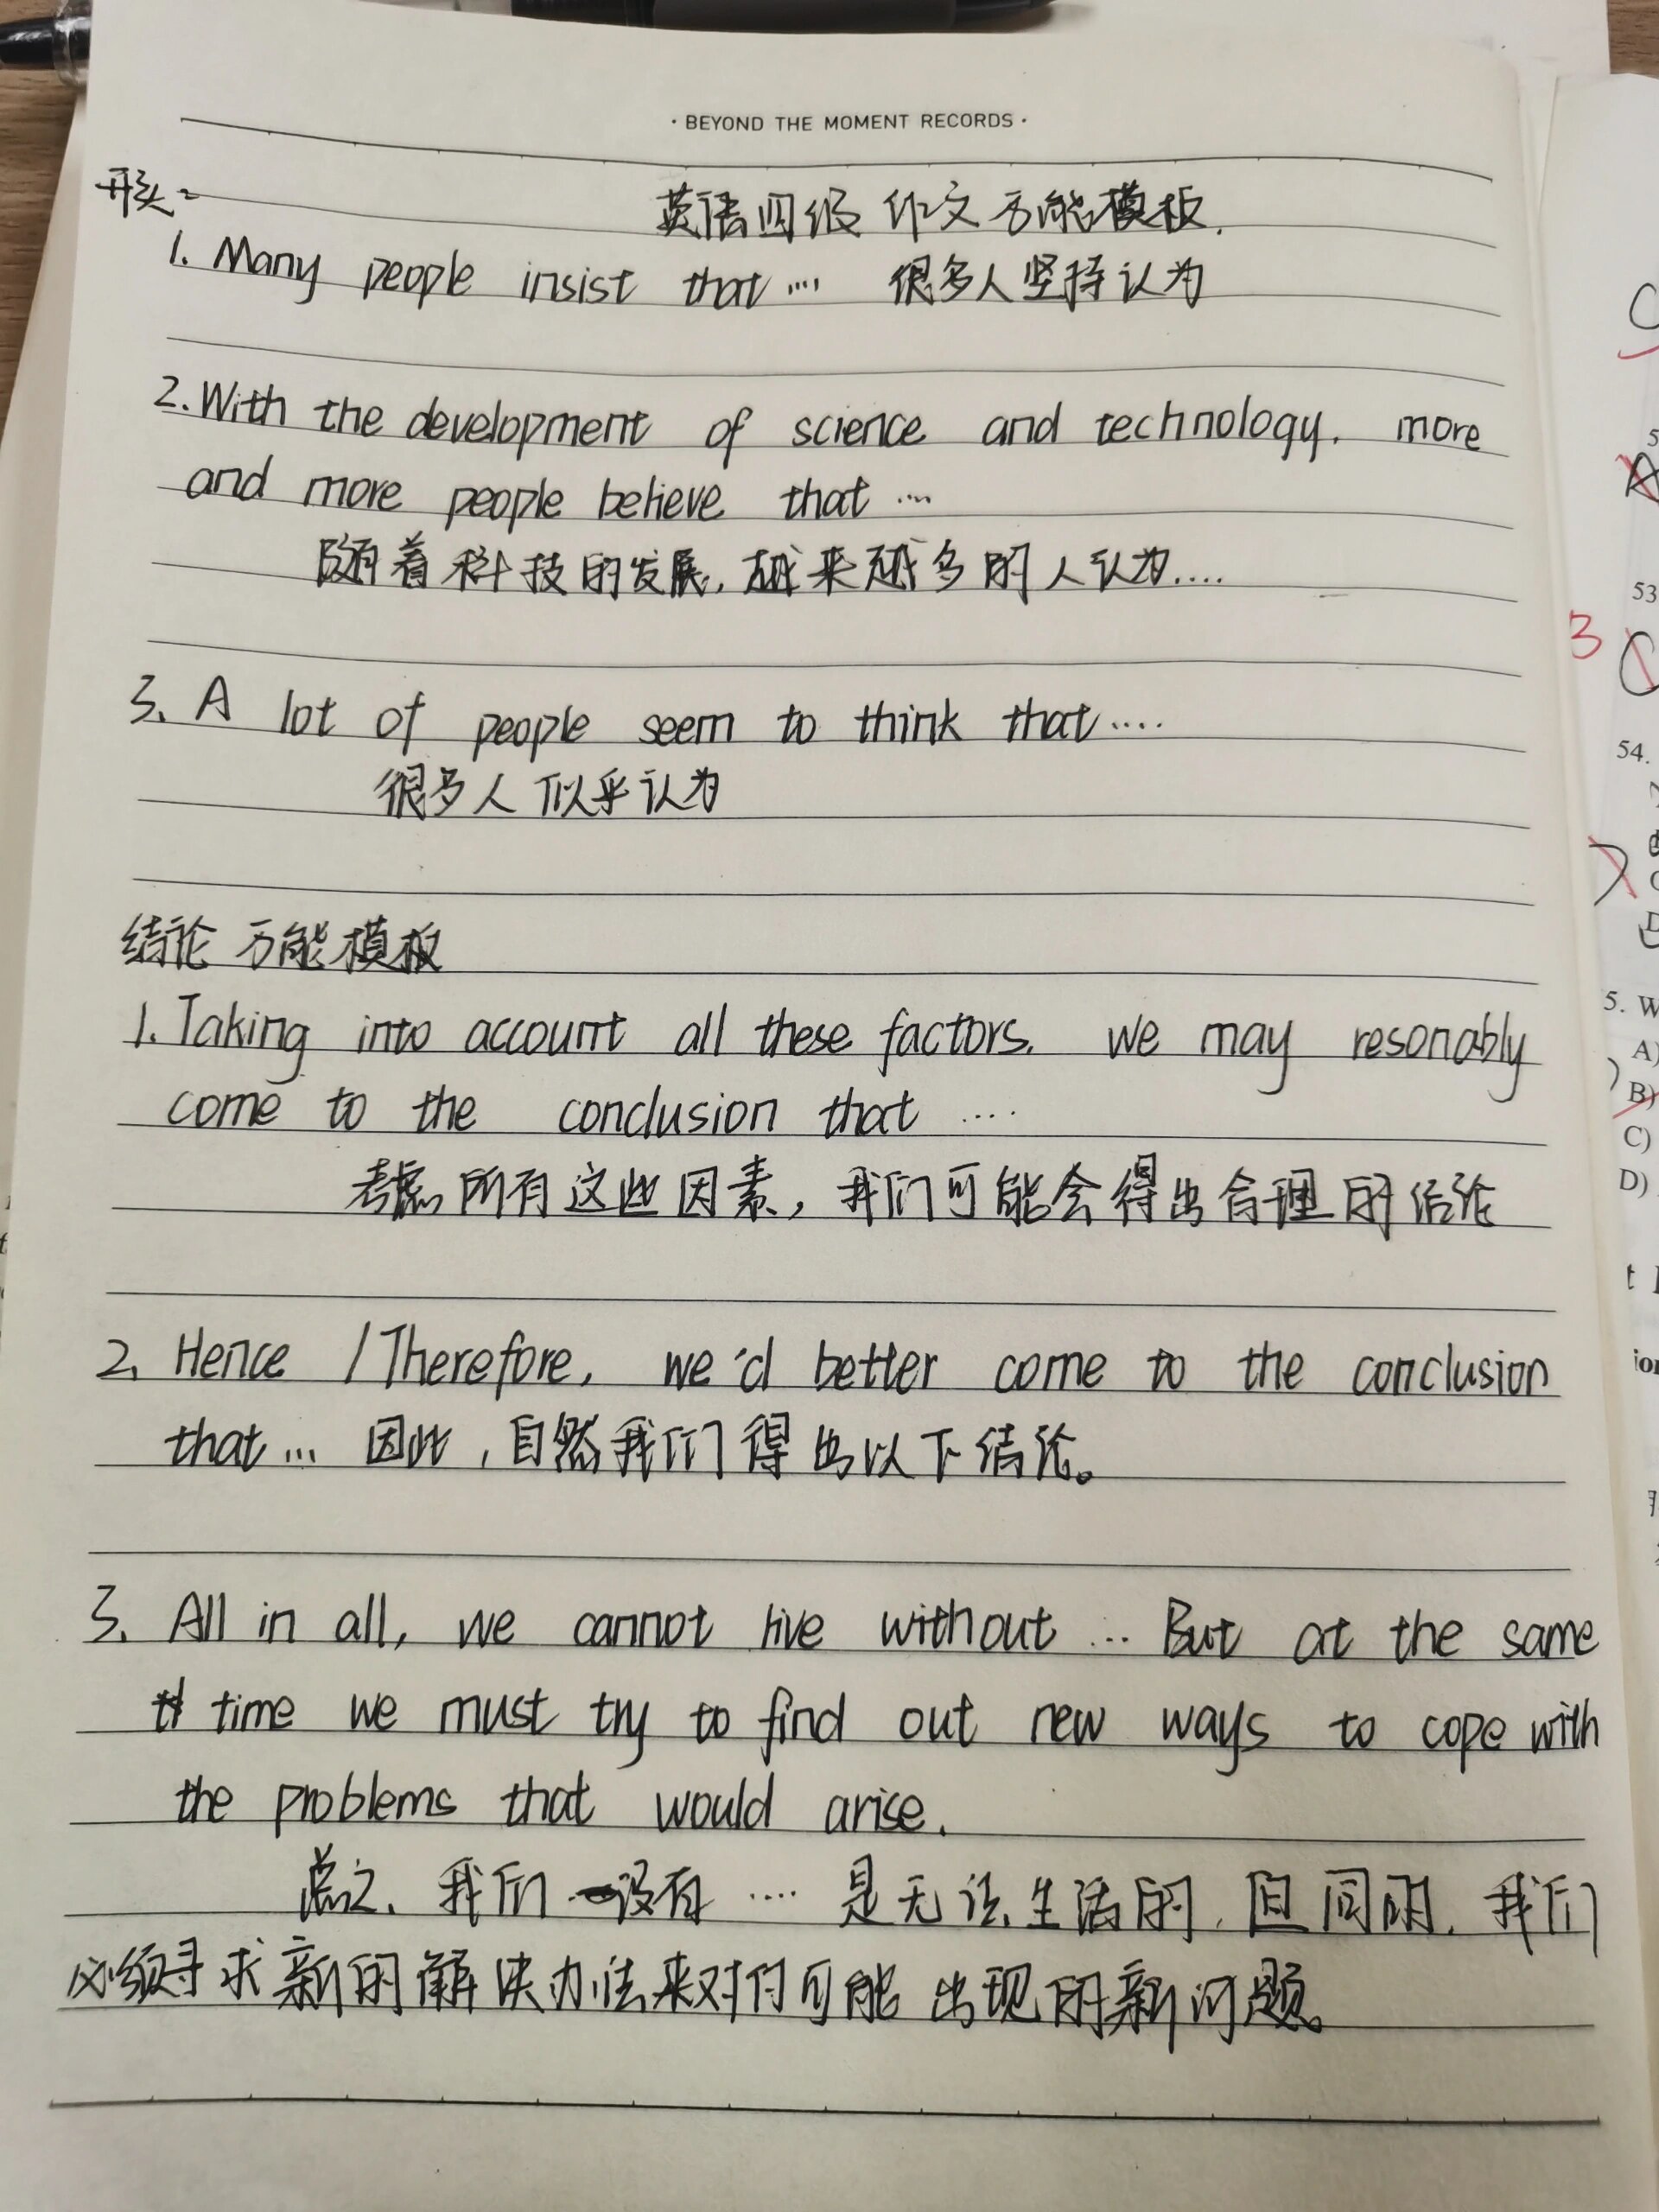 · BEYOND THE MOMENT RECORDS ·
开头:
英语四级 作文万能模板.
1. Many people insist that .... 很多人坚持认为
2. With the development of science and technology, more
and more people believe that ....
随着科技的发展, 越来越多的人认为....
3. A lot of people seem to think that ....
很多人似乎认为
结论 万能模板
1. Taking into account all these factors, we may resonably
come to the conclusion that ....
考虑所有这些因素, 我们可能会得出合理的结论
2. Hence / Therefore, we'd better come to the conclusion
that ... 因此, 自然我们得出以下结论。
3. All in all, we cannot live without ... But at the same
time we must try to find out new ways to cope with
the problems that would arise.
总之, 我们没有 .... 是无法生活的, 但同时, 我们
必须寻求新的解决办法来对付可能出现的新问题。
53
54.
5. W
A)
B)
C)
D)